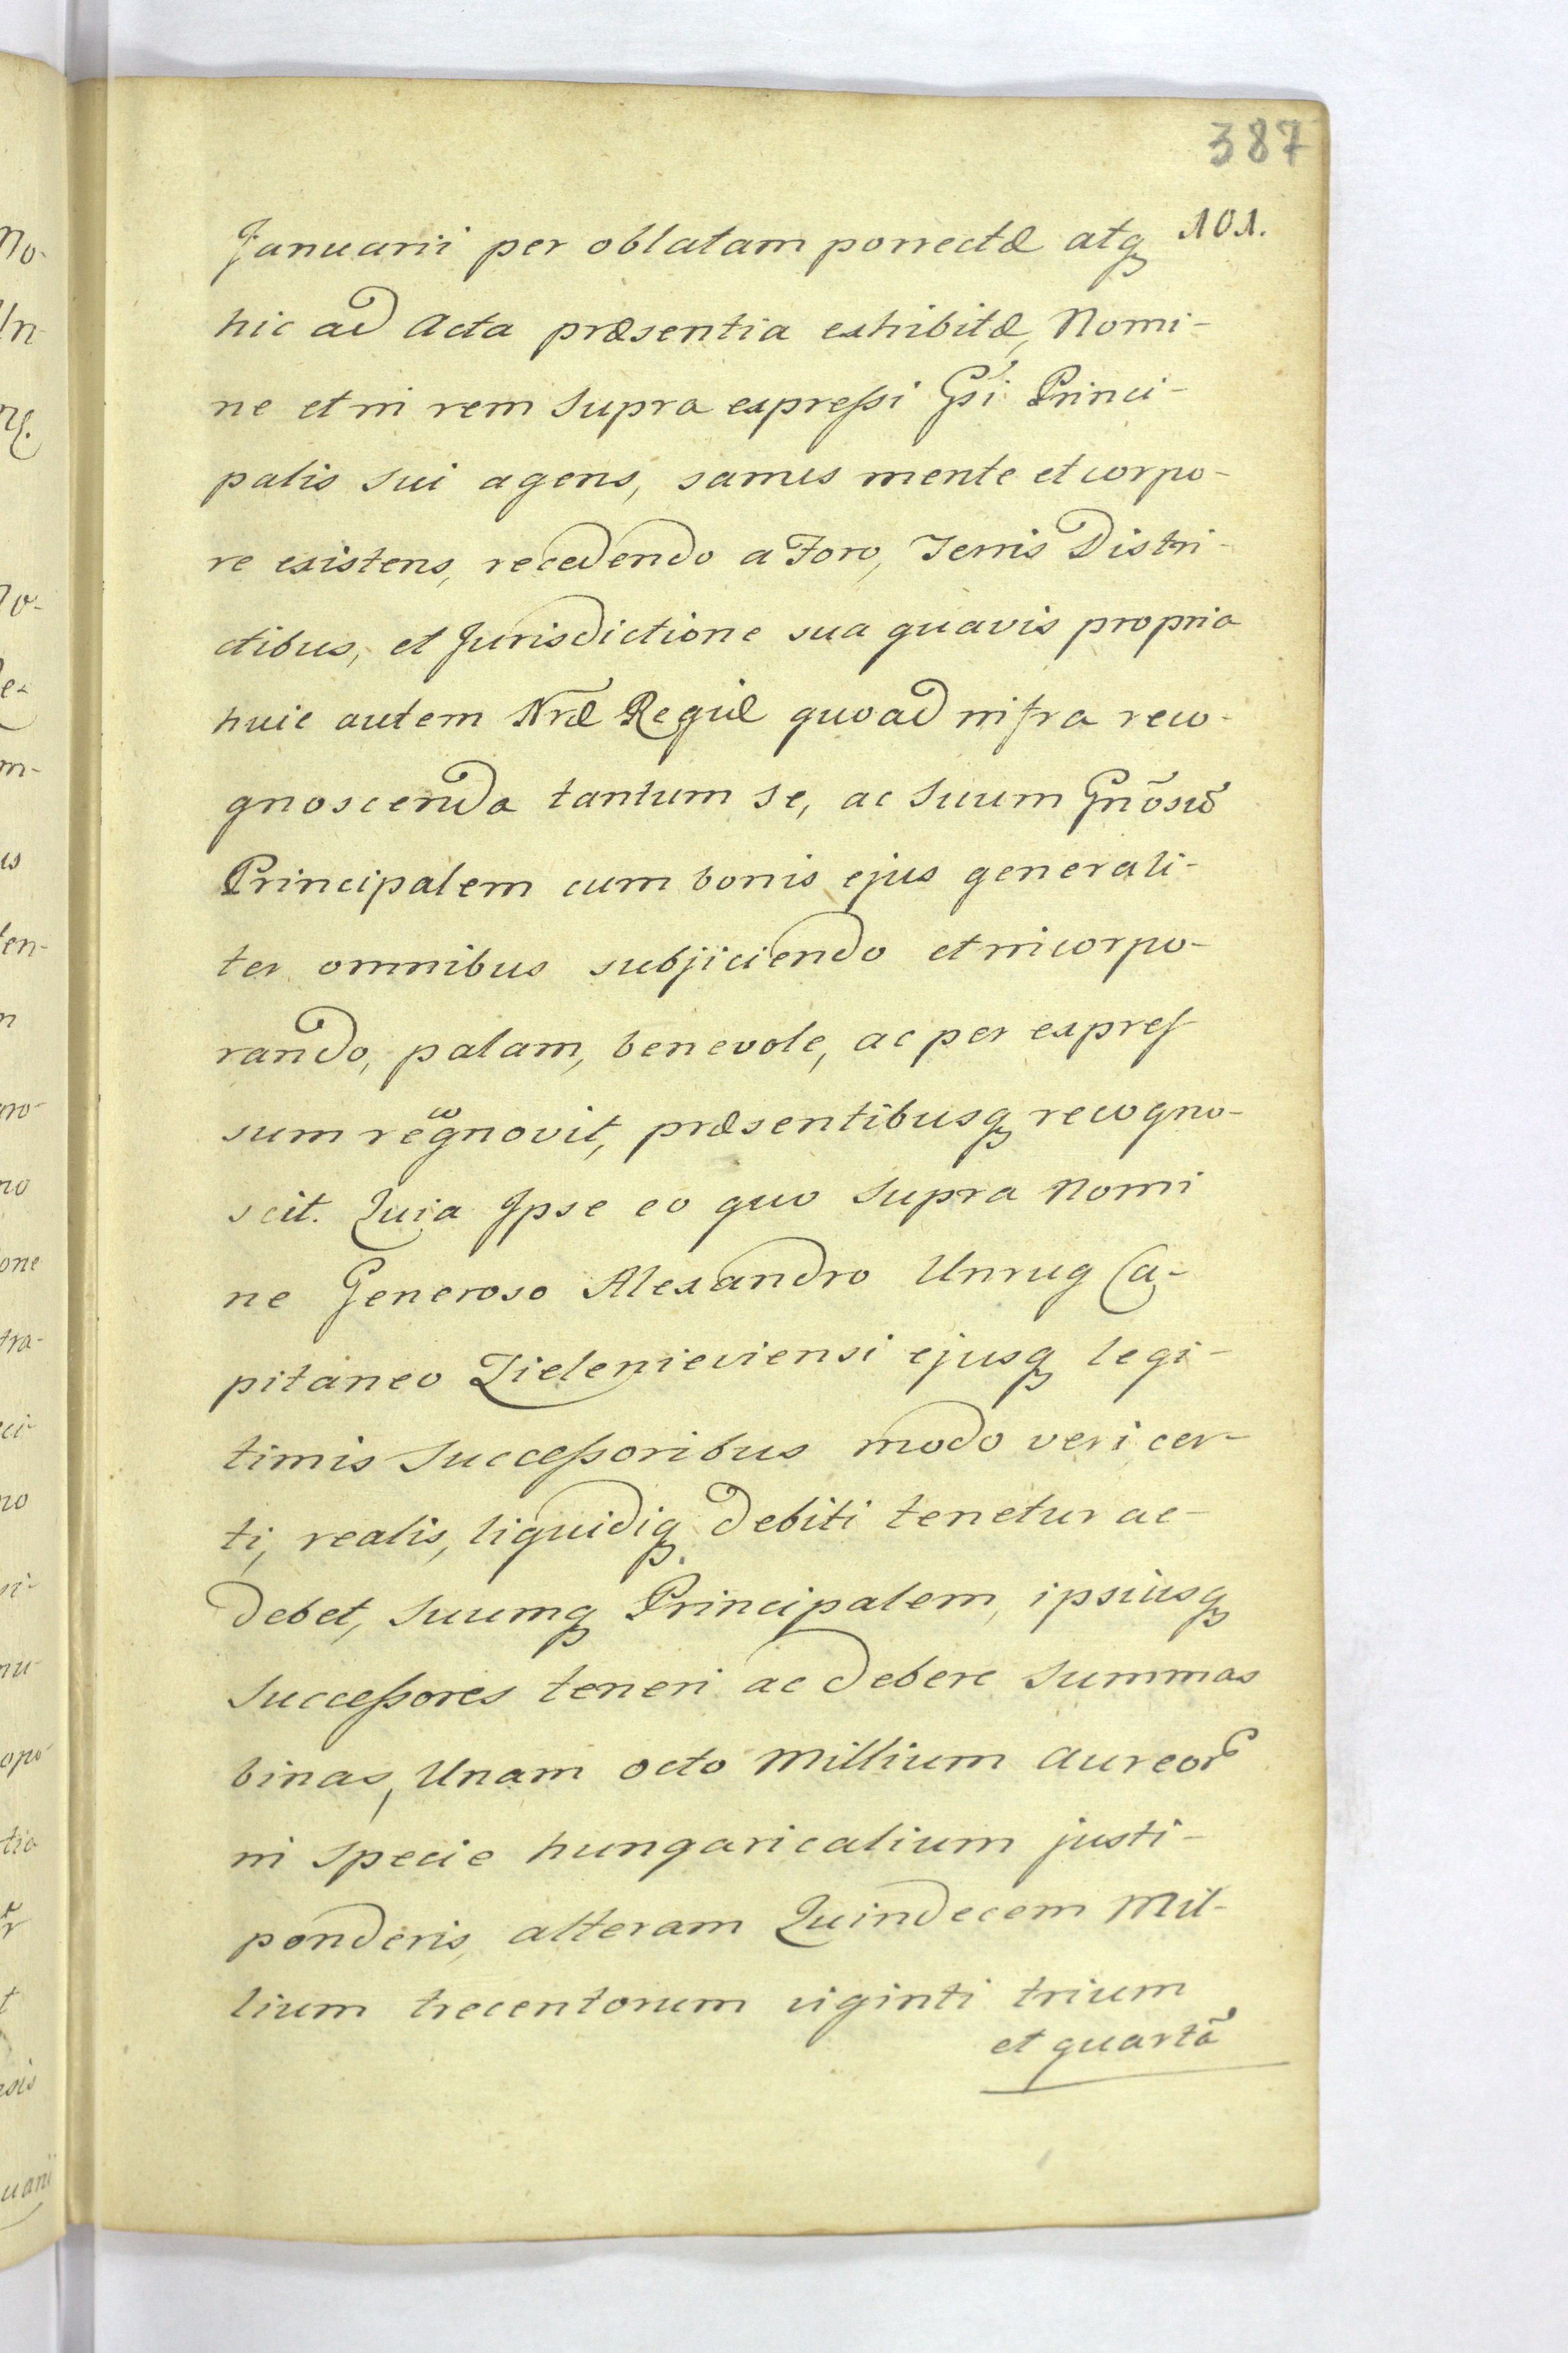 387
101.
Januarii per oblatam porrectæ atq
hic ad Acta præsentia exhibitæ, Nomi-
ne et in rem supra expressi Gsi Princi-
palis sui agens, sanus mente et corpo-
re existens, recedendo a Foro, Terris Distri-
ctibus, et Jurisdictione sua quavis propria
huic autem Nræ Regiæ quoad infra reco-
gnoscenda tantum se, ac suum Gnōsū
Principalem cum bonis ejus generali-
ter omnibus subjiciendo et incorpo-
rando, palam, benevole, ac per expres
sum recognovit, præsentibusq recogno-
scit. Quia Ipse eo quo supra Nomi
ne Generoso Alexandro Unrug Ca-
pitaneo Zieleniewiensi ejusq legi-
timis Successoribus modo veri cer-
ti, realis, liquidiq debiti tenetur ac-
debet, suumq Principalem, ipsiusq
Successores teneri ac debere summas
binas, Unam octo Millium Aureor
in specie hungaricalium justi-
ponderis, alteram Quindecem Mil-
lium trecentorum viginti trium
et quartā